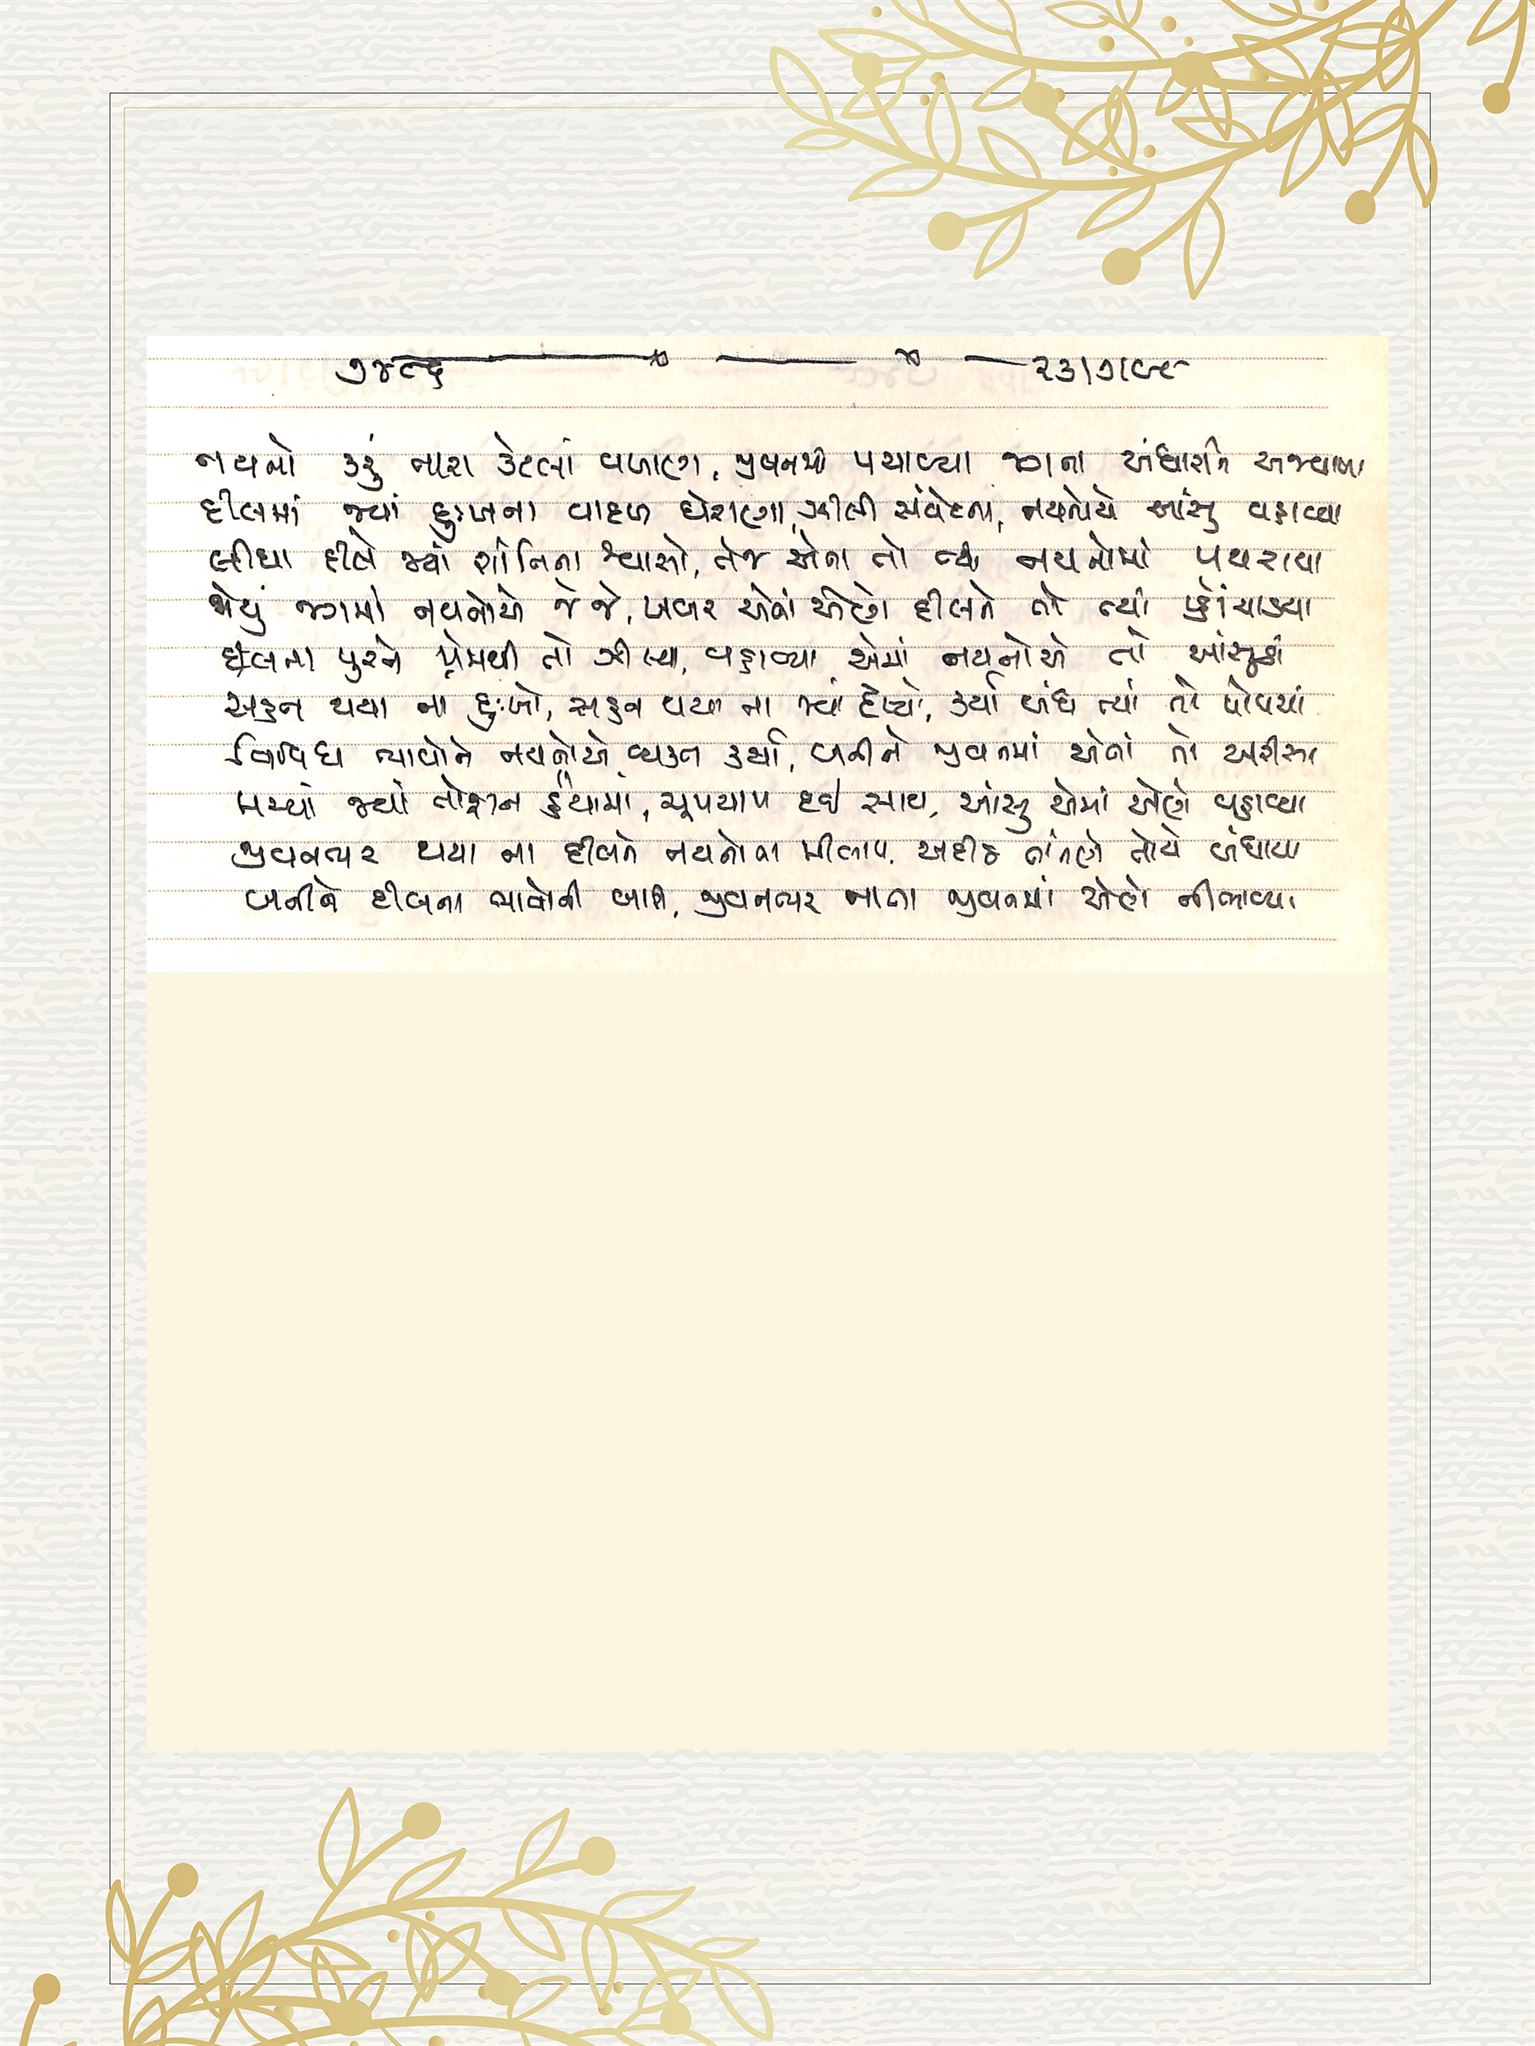 ૭૪૯૬ ૨૩|૭|૯૮
નયનો કરું તારા કેટલાં વખાણ, જીવનમાં પચાવ્યા જગના અંધારાને અજવાળા
દીલમાં જ્યાં દુઃખના વાદળ ઘેરાણા, ઝીલી સંવેદના, નયનોયે આંસુ વહાવ્યા
લીધા દીલે જ્યાં શાંતિના શ્વાસો, તેજ એના તો ત્યાં નયનોમાં પથરાયા
જોયું જગમાં નયનોએ જે જે, ખબર એનાં એણે દીલને તો ત્યાં પ્હોંચાડયા
દીલના પુરને પ્રેમથી તો ઝીલ્યા, વહાવ્યા એમાં નયનોએ તો આંસુઓ
સહન થયા ના દુઃખો, સહન થયા ના જ્યાં દૃશ્યો, કર્યા બંધ ત્યાં તો પોપચાં
વિવિધ ભાવોને નયનોએ વ્યક્ત કર્યા, બનીને જીવનમાં એનાં તો અરીસા
મચ્યાં જ્યાં તોફાન હૈયામાં, ચૂપચાપ દઈ સાથ, આંસુ એમાં એણે વહાવ્યા
જીવનભર થયા ના દીલને નયનોના મીલાપ, અદીઠ તાંતણે તોયે બંધાયા
બનીને દીલના ભાવોની બારી, જીવનભર નાતા જીવનમાં એણે નીભાવ્યા